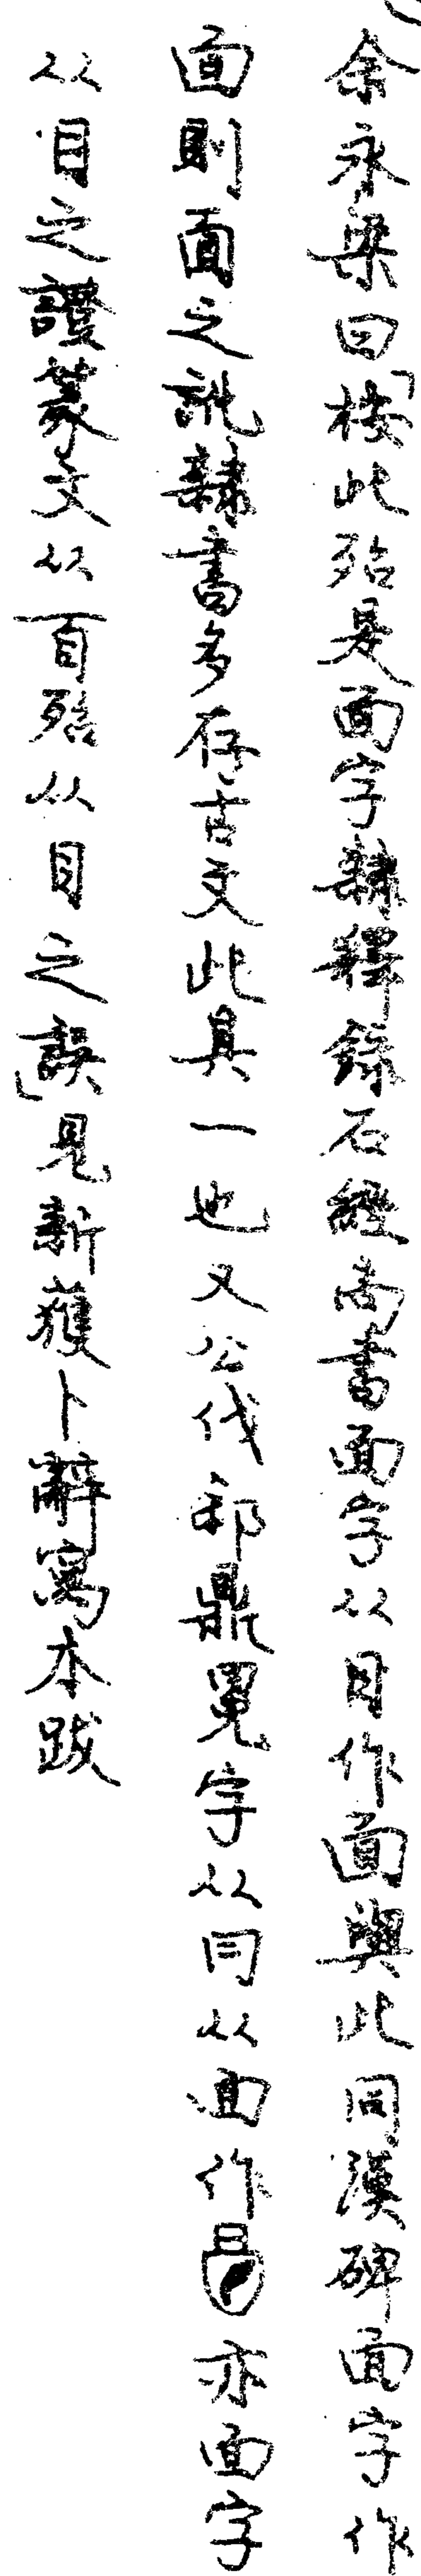 余永梁曰「桉此殆是面字隸釋錄石經尚書面字从目作面與此同漢碑面字作
面則面之訛隸書多存古文此具一也又公伐郘鼎冕字从冃从面作亦面字
从目之證篆文从𦣻殆从目之誤」見新獲卜辭寫本跋